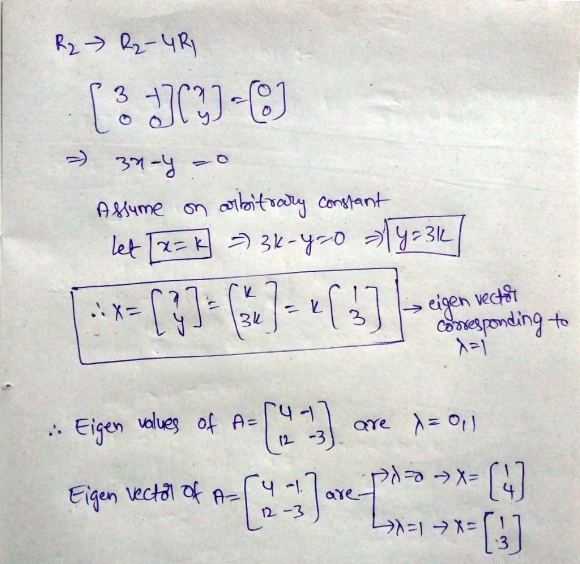 R₂ → R₂-4R₁
[3 -1; 0 0] [x; y] = [0; 0]
⇒ 3x-y =0
Assume on arbitrary constant
let x=k ⇒ 3k-y=0 ⇒ y=3k
∴ X = [x; y] = [k; 3k] = k [1; 3] → eigen vector
corresponding to
λ=1
∴ Eigen values of A= [4 -1; 12 -3] are λ=0,1
Eigen vector of A= [4 -1; 12 -3] are →λ=0 → X= [1; 4]
→λ=1 → X= [1; 3]